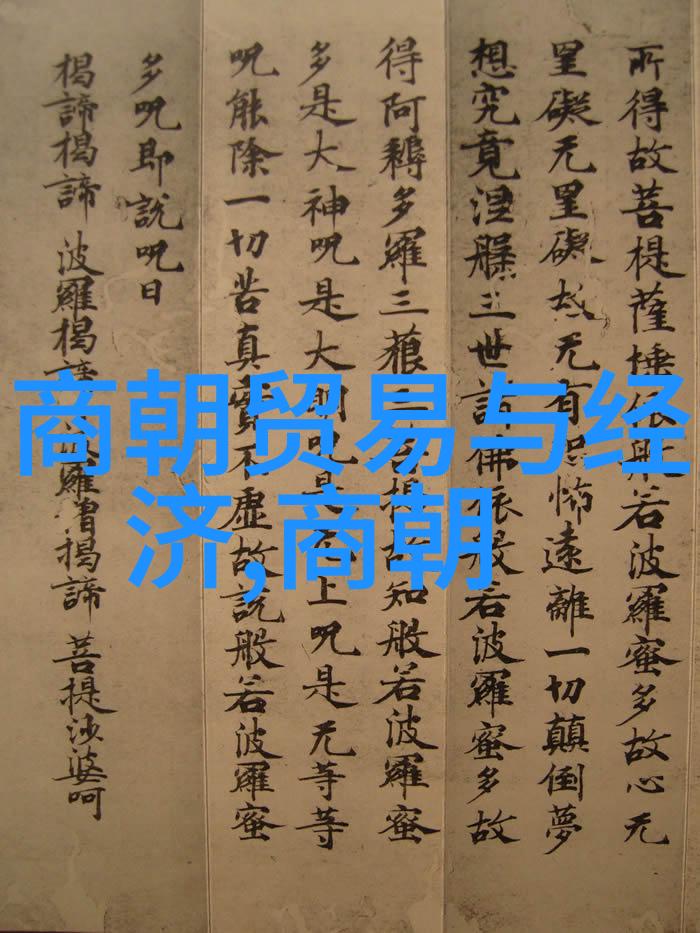 商朝贸易与经
济,商朝
所得故菩提薩埵依般若波羅蜜多故心无
罣礙无罣礙故无有恐怖遠離一切顛倒夢
想究竟涅槃三世諸佛依般若波羅蜜多故
得阿耨多羅三藐三菩提故知般若波羅蜜
多是大神呪是大明呪是无上呪是无等等
呪能除一切苦真實不虛故說般若波羅蜜
多呪即說呪曰
揭諦揭諦 波羅揭諦 波羅僧揭諦 菩提沙婆呵